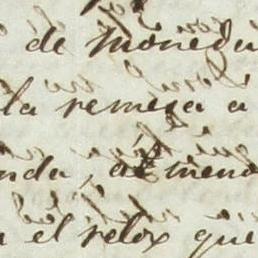 de moneda
la remesa a
nda, al meno
a el relox que